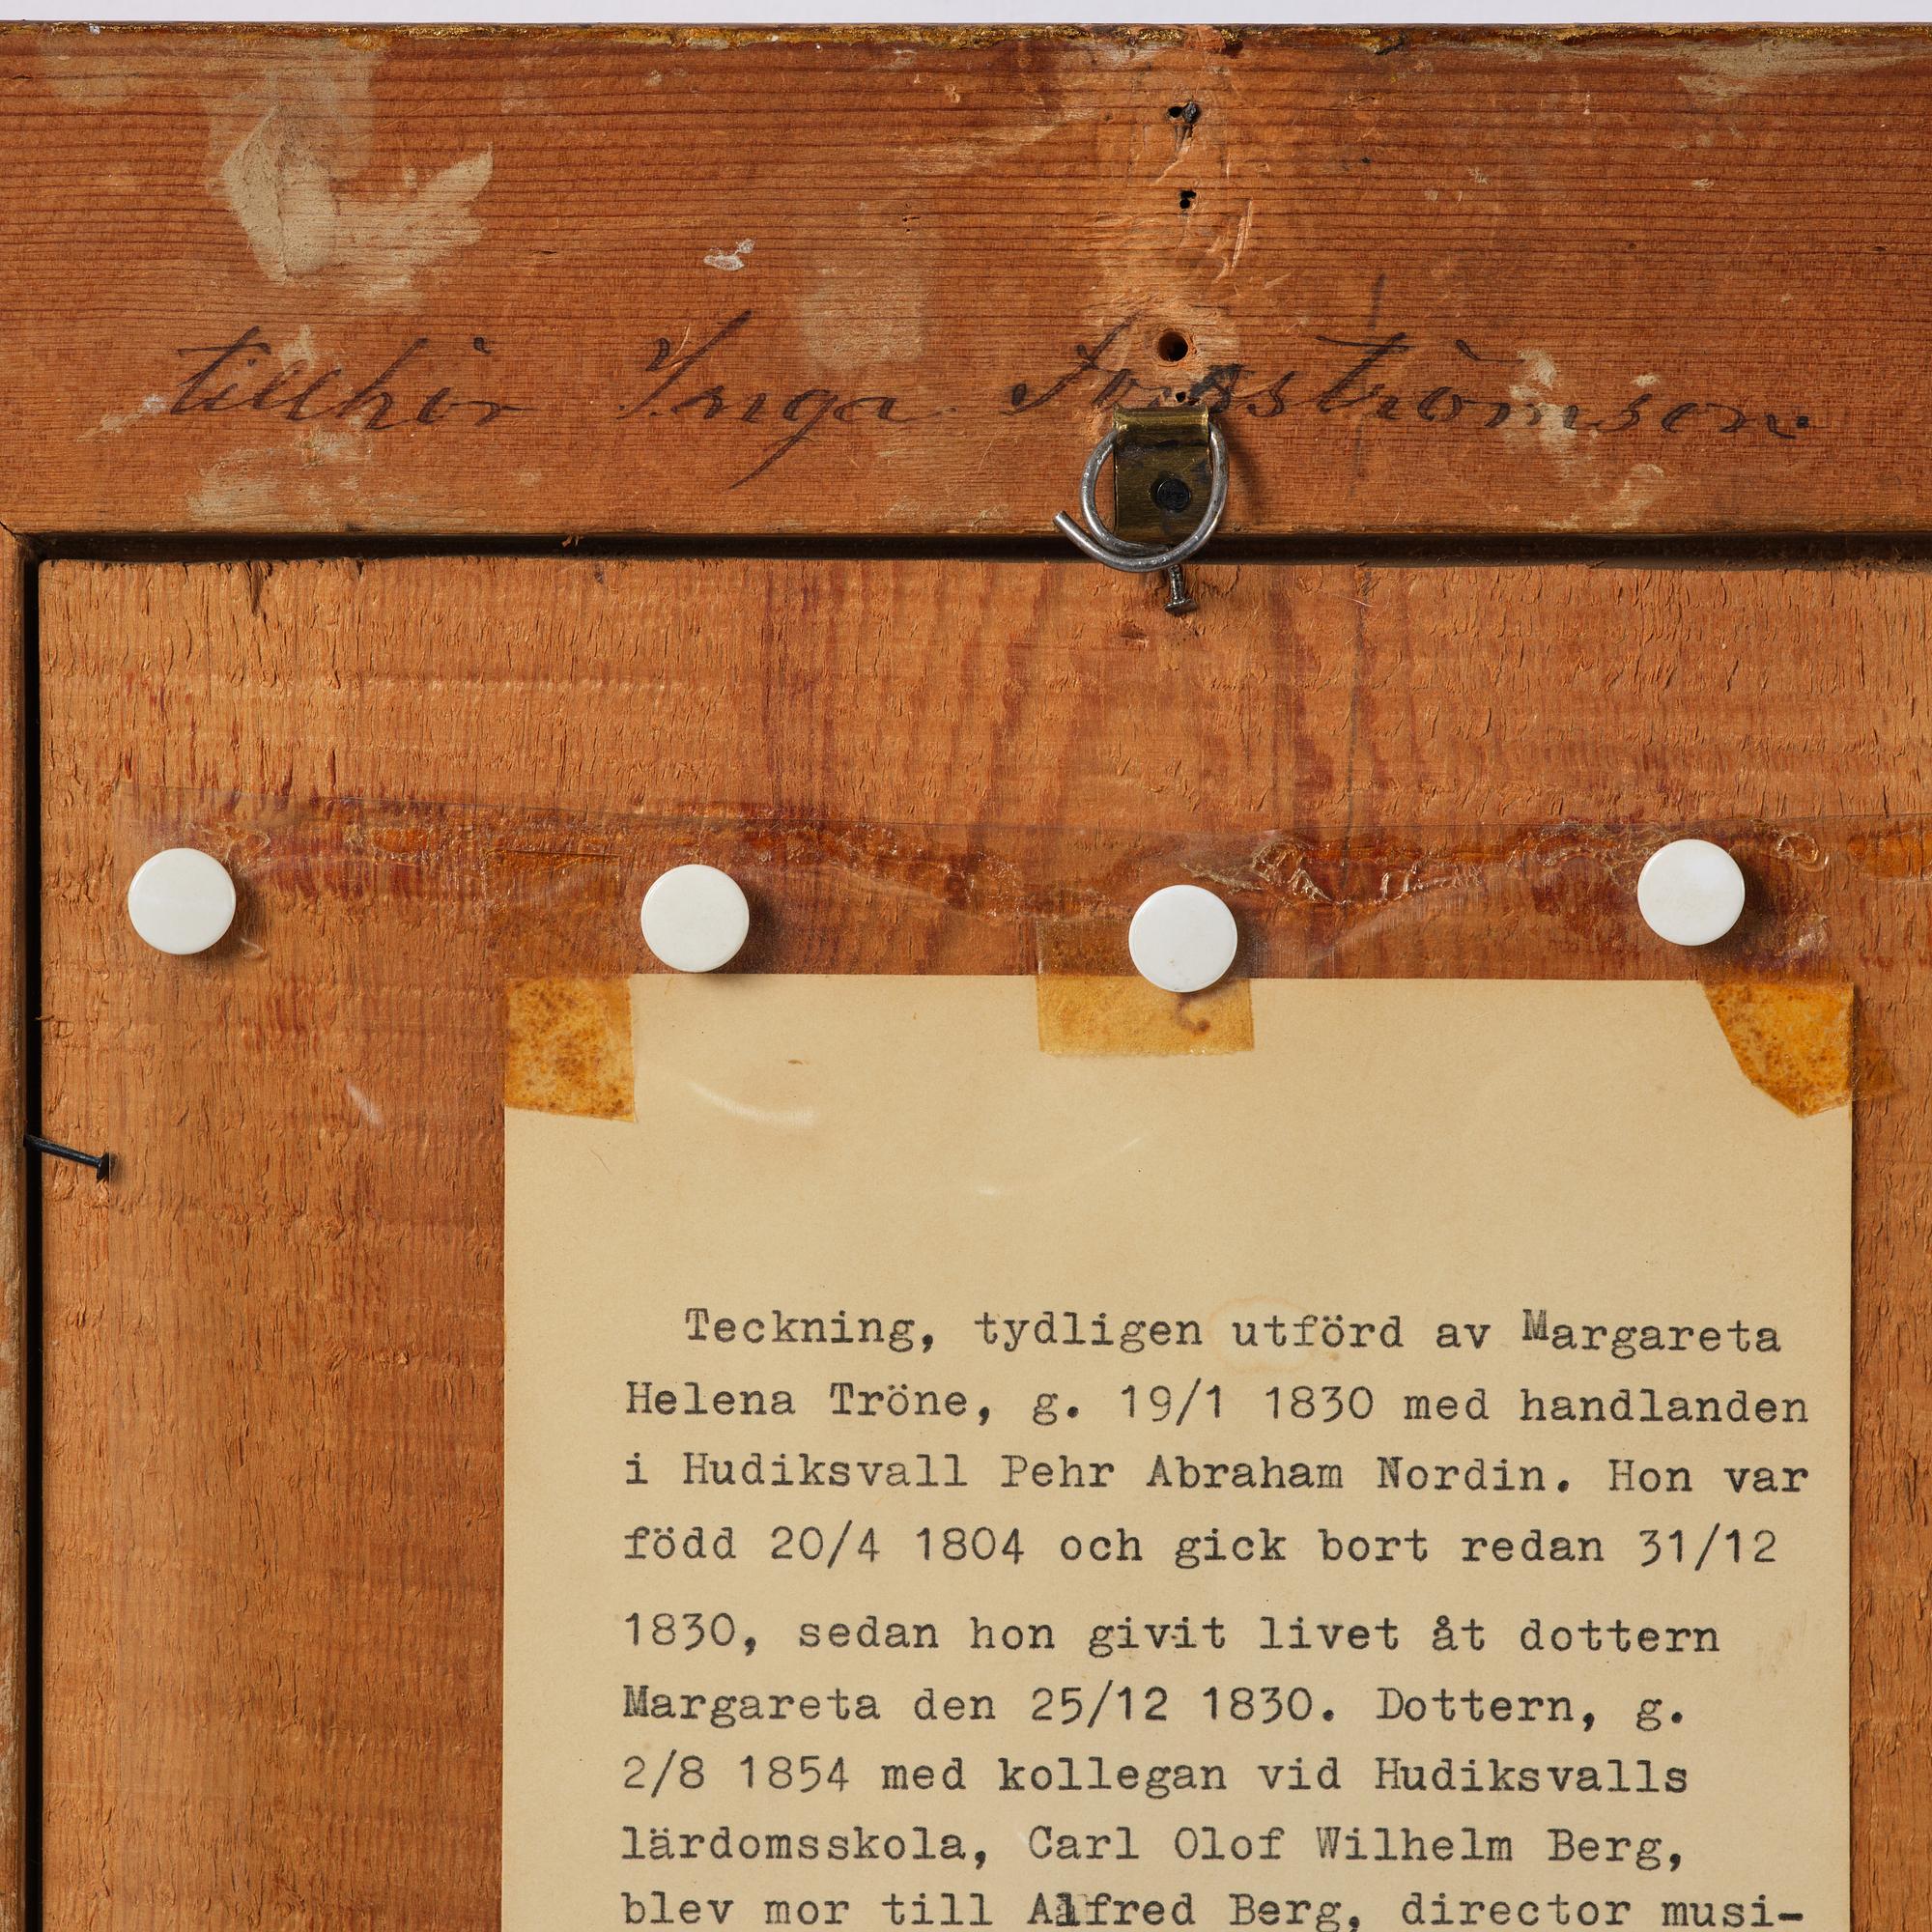 tillhör Inga Forsströmsen.
Teckning, tydligen utförd av Margareta
Helena Tröne, g. 19/1 1830 med handlanden
i Hudiksvall Pehr Abraham Nordin. Hon var
född 20/4 1804 och gick bort redan 31/12
1830, sedan hon givit livet åt dottern
Margareta den 25/12 1830. Dottern, g.
2/8 1854 med kollegan vid Hudiksvalls
lärdomsskola, Carl Olof Wilhelm Berg,
blev mor till Alfred Berg, director musi-